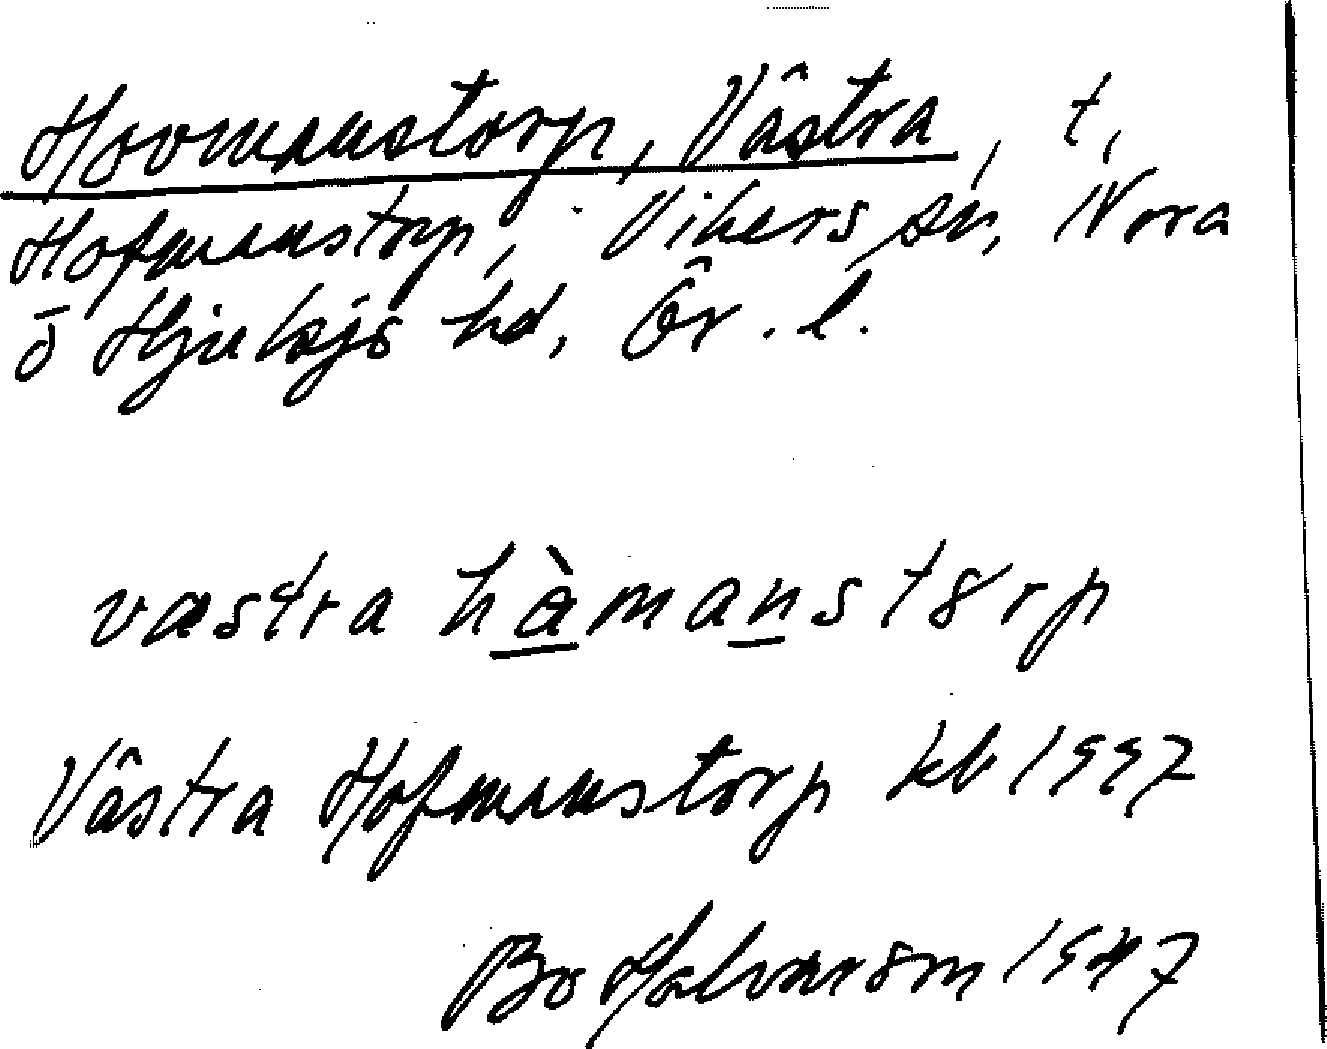 Hovmanstorp, Västra, t,
Hofmanstorp, Vikers sn, Nora
o Hjulsjö hd, Ör. l.
væstra hàmanstørp
Västra Hofmanstorp kb 1947
Bo 1947